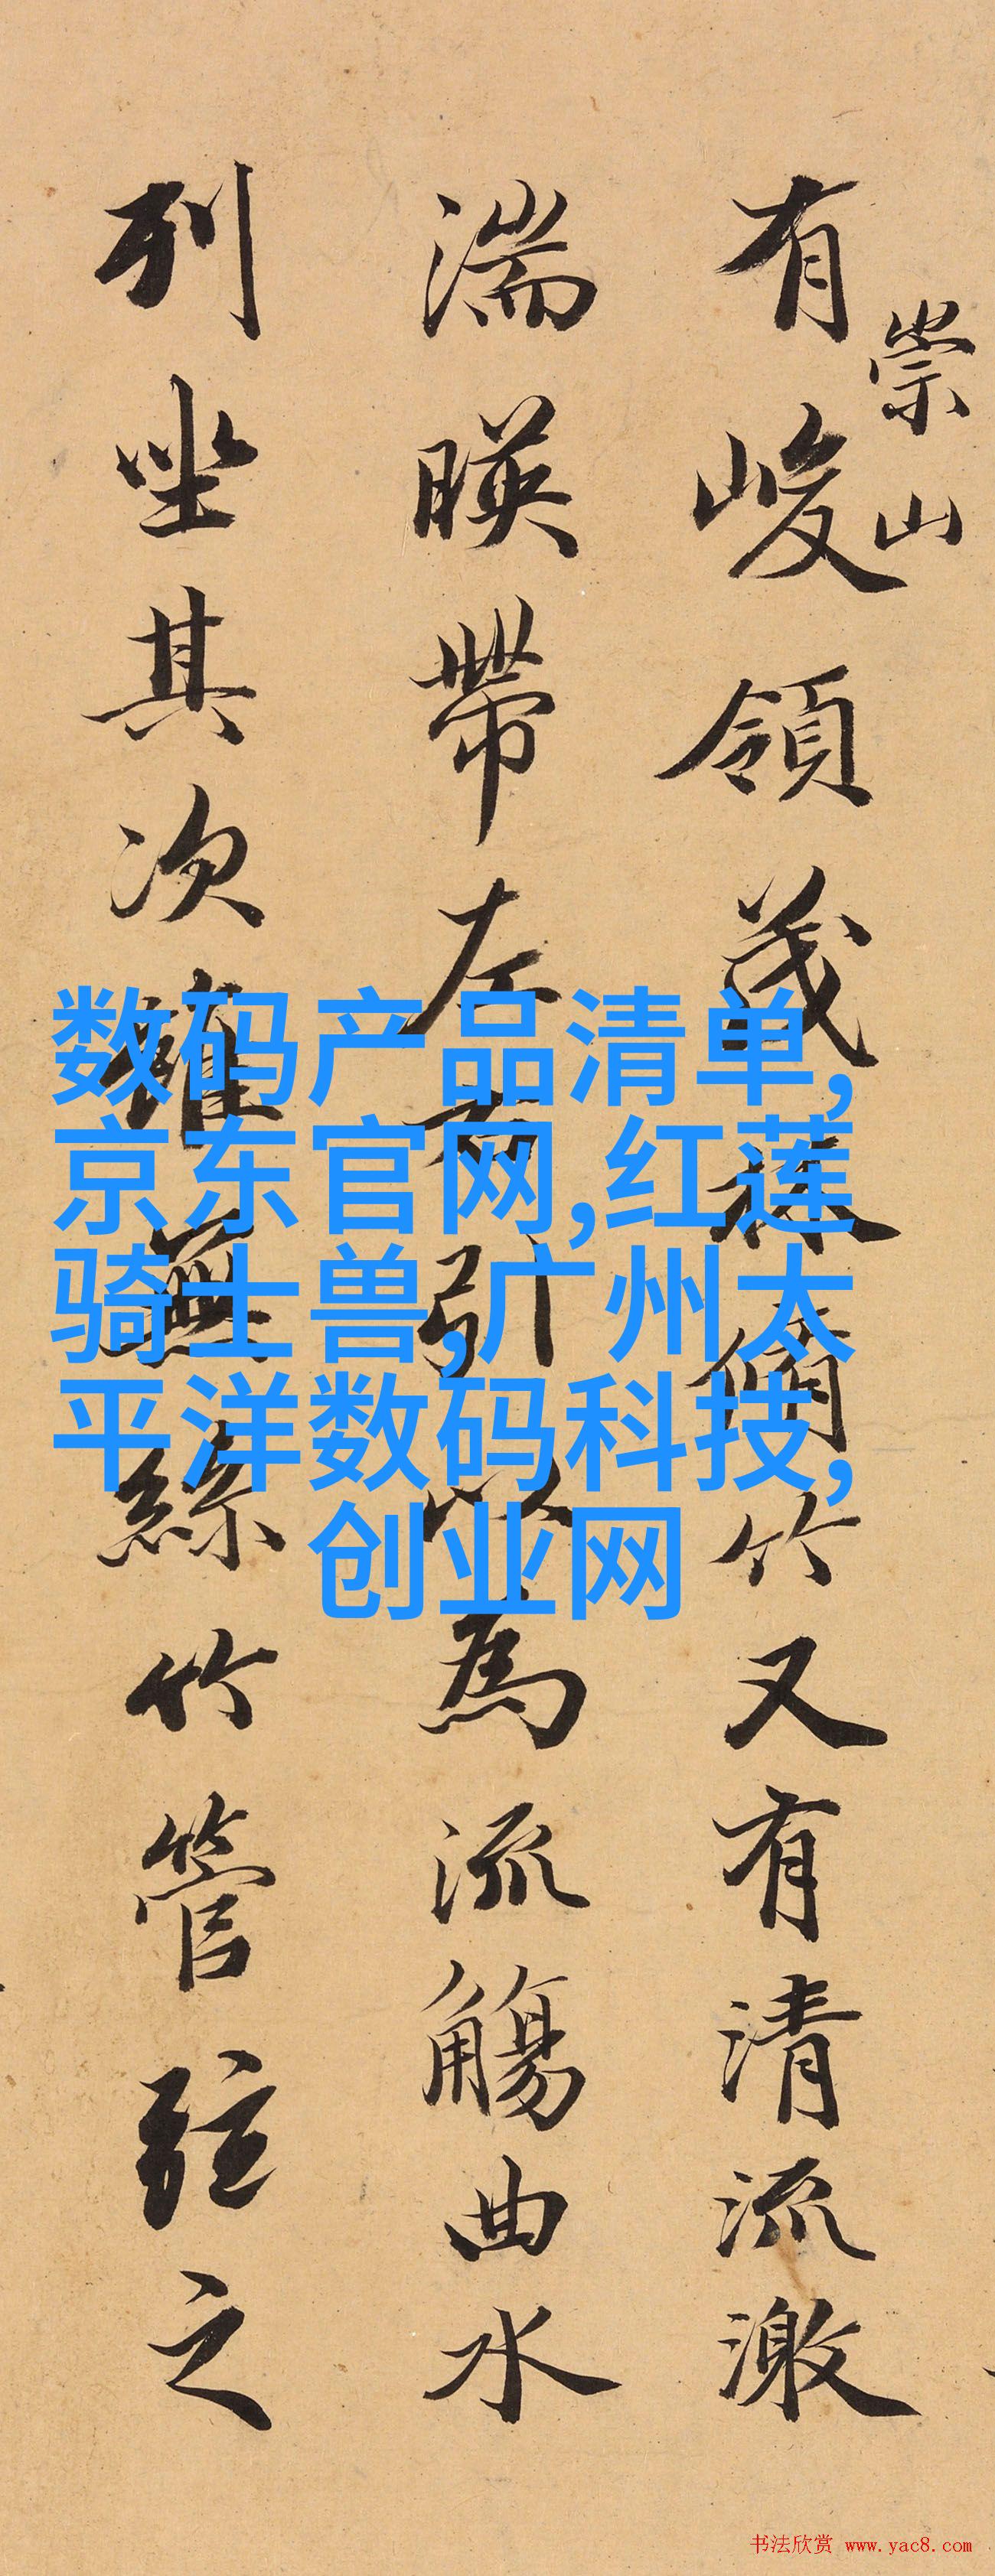 崇山
有峻領茂林脩竹又有清流激
湍暎帶左右引以為流觴曲水
列坐其次雖無絲竹管弦之
数码产品清单,
京东官网,红莲
骑士兽,广州太
平洋数码科技,
创业网
书法欣赏 www.yac8.com